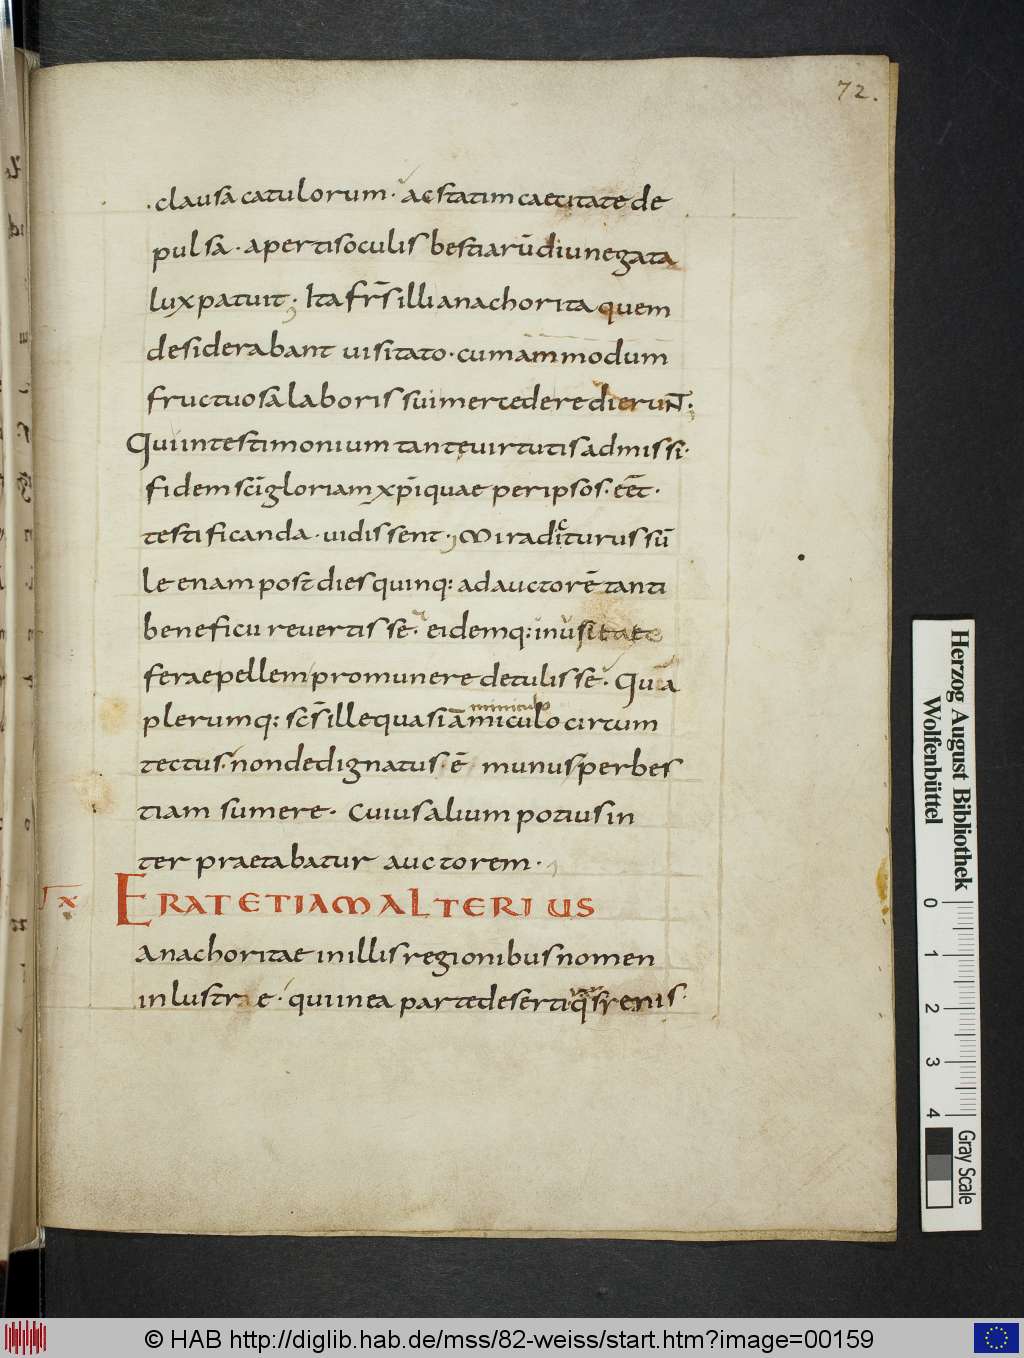 72.
. clausa catulorum · ac statim caecitate de
pulsa · apertis oculis bestiarū diu negata
lux patuit; Ita fr̄s illi anachorita quem
desiderabant visitato · cum ammodum
fructuosa laboris sui mercede redierunt̄;
Qui in testimonium tante virtutis admissi ·
fidem sc̄i gloriam xp̄i quae per ipsos · eēt ·
testificanda · vidissent ·, Mira dicturus sū
leaenam post dies quinq: ad auctorē tanti
beneficii revertisse · eidemq: inusitate
ferae pellem pro munere detulisse · Quā
plerumq: sc̄s ille quasi āmiculo circum
miniculo
tectus · non dedignatus · ē munus per bes
tiam sumere · Cuius alium potius in
terpraetabatur auctorem ·
x
ERAT ETIAM ALTERIUS
Anachoritae in illis regionibus nomen
inlustrae · qui in ea parte deserti
Herzog August Bibliothek
Wolfenbüttel
0 1 2 3 4
Gray Scale
© HAB http://diglib.hab.de/mss/82-weiss/start.htm?image=00159